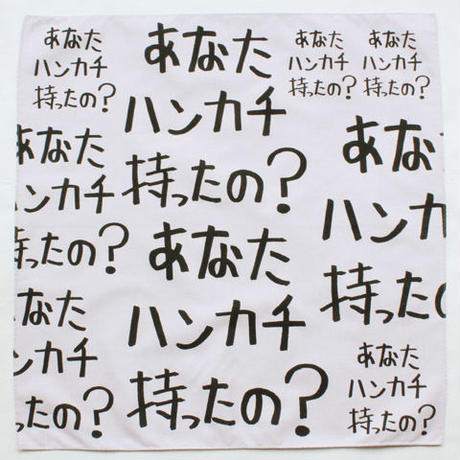 あなた
ハンカチ
持ったの?
あなた
ハンカチ
持ったの?
あなた
ハンカチ
持ったの?
あなた
ハンカチ
持ったの?
あなた
ハンカチ
持ったの?
あなた
ハンカチ
持ったの
あなた
ハンカチ
持ったの?
あなた
ハンカチ
持ったの?
あなた
ハンカチ
持ったの?